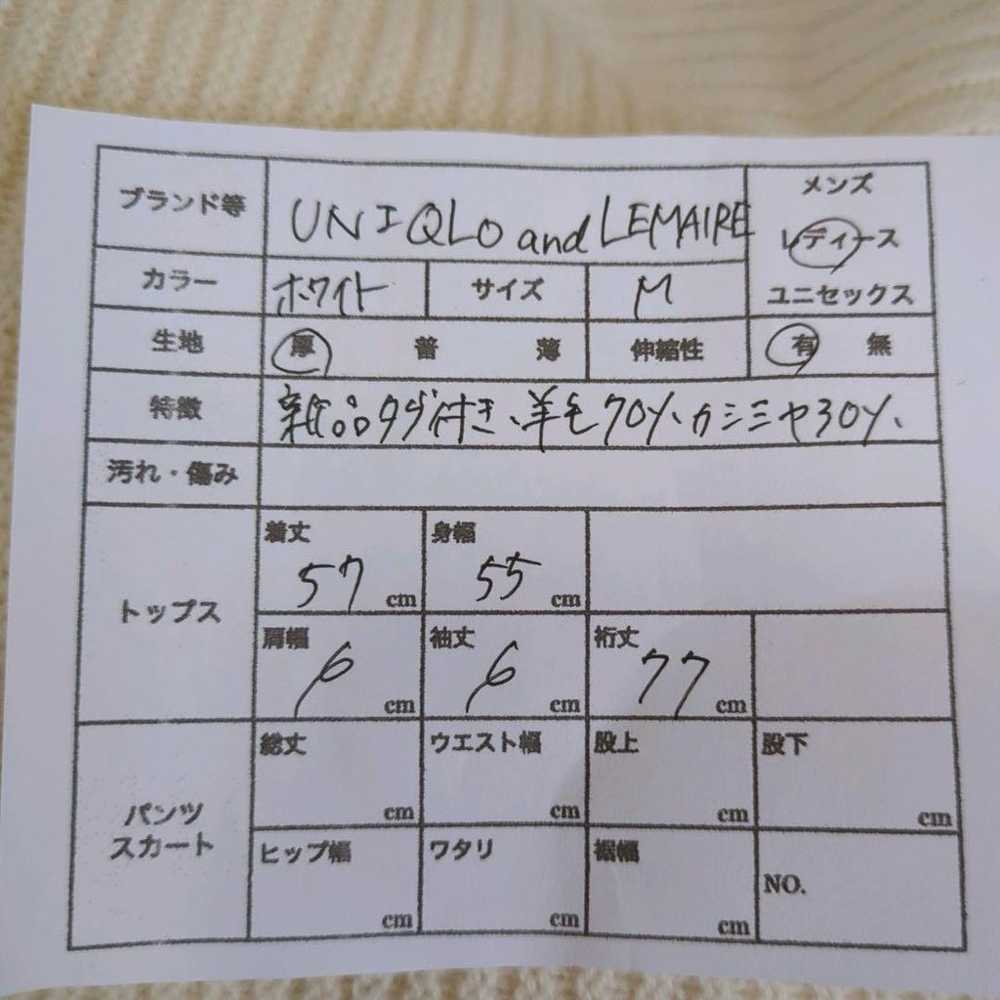 ブランド等 UNIQLO and LEMAIRE メンズ
レディース
カラー ホワイト サイズ M ユニセックス
生地 厚 普 薄 伸縮性 有 無
特徴 新品タグ付き、羊毛70%、カシミヤ30%、
汚れ・傷み
トップス
着丈 57 cm 身幅 55 cm
肩幅 6 cm 袖丈 6 cm 裄丈 77 cm
パンツ
スカート
総丈 cm ウエスト幅 cm 股上 cm 股下 cm
ヒップ幅 cm ワタリ cm 裾幅 cm NO.